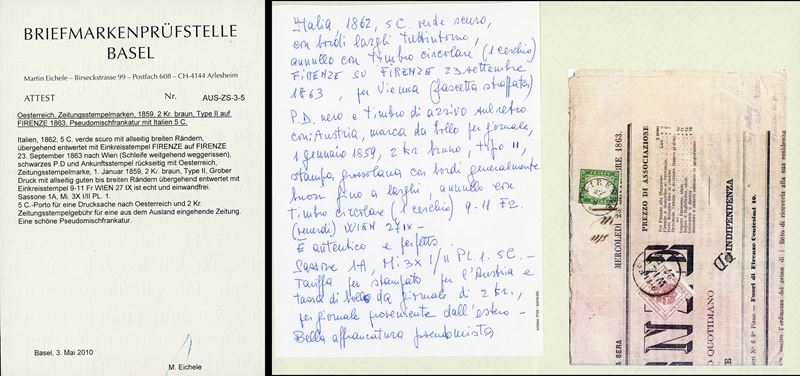 BRIEFMARKENPRÜFSTELLE
BASEL
Martin Eichele – Birseckstrasse 99 – Postfach 608 – CH-4144 Arlesheim
ATTEST Nr. AUS-ZS-3-5
Oesterreich, Zeitungsstempelmarken, 1859, 2 Kr. braun, Type II auf
FIRENZE 1863. Pseudomischfrankatur mit Italien 5 C.
Italien, 1862, 5 C. verde scuro mit allseitig breiten Rändern,
übergehend entwertet mit Einkreisstempel FIRENZE auf FIRENZE
23. September 1863 nach Wien (Schleife weitgehend weggerissen),
schwarzes P.D und Ankunftsstempel rückseitig mit Oesterreich,
Zeitungsstempelmarke, 1. Januar 1859, 2 Kr. braun, Type II, Grober
Druck mit allseitig guten bis breiten Rändern übergehend entwertet mit
Einkreisstempel 9-11 Fr WIEN 27 IX ist echt und einwandfrei.
Sassone 1A, Mi. 3X I/II PL. 1.
5 C.-Porto für eine Drucksache nach Oesterreich und 2 Kr.
Zeitungsstempelgebühr für eine aus dem Ausland eingehende Zeitung.
Eine schöne Pseudomischfrankatur.
Basel, 3. Mai 2010
M. Eichele
Italia, 1862, 5 C. verde scuro,
con bordi larghi tuttintorno,
annullo con timbro circolare (1 cerchio)
FIRENZE SU FIRENZE 23 settembre
1863, per Vienna (fascetta strappata)
P.D. nero e timbro di arrivo sul retro
con: Austria, marca da bollo per giornale,
1 gennaio 1859, 2 Kr bruno, tipo II,
stampa grossolana con bordi generalmente
buoni fino a larghi annullo con
timbro circolare (1 cerchio) 9-11 FR
(venerdì) WIEN 27 IX –
È autentico e perfetto
Sassone 1A, Mi 3X I/II PL. 1. 5C. –
Tariffa per stampato per l'Austria e
tassa di bollo da giornale di 2 Kr.,
per giornale proveniente dall'estero –
Bella affrancatura pseudomista
MERCOLEDÌ 23
BRE 1863.
PREZZO DI ASSOCIAZIONE
INDIPENDENZA
QUOTIDIANO
Fuori di Firenze Centesimi 10.
A SERA